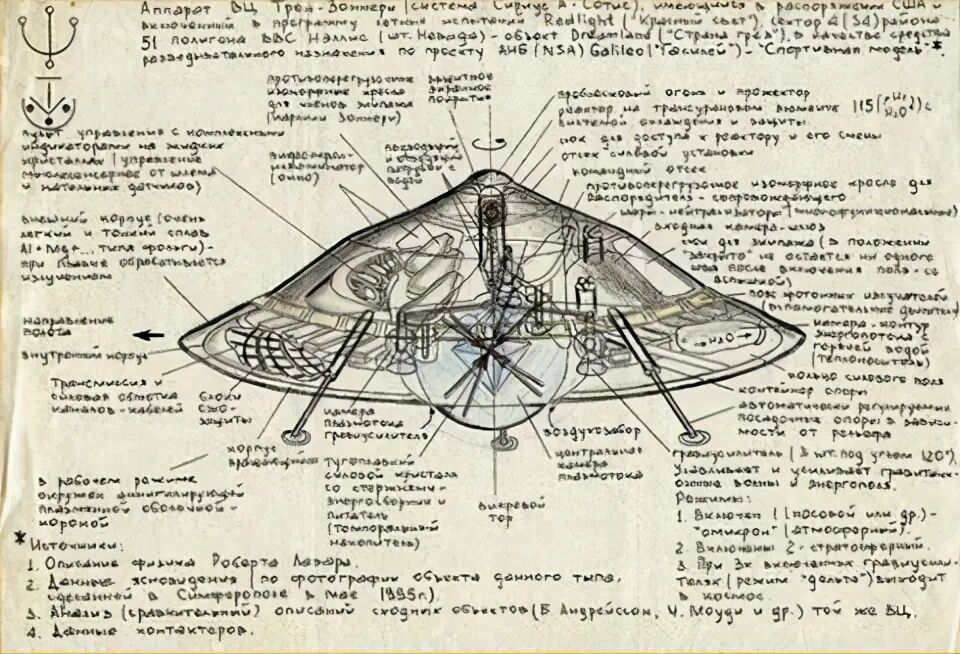 Аппарат ВЦ Трон-Воннери (система Сириус А - Сотис), имеющийся в распоряжении США и
включенный в программу летных испытаний Redlight ("Красный свет"), сектор 4 (34) района
51 полигона ВВС Нэллис (шт. Невада) - объект Dreamland ("Страна грёз"), в качестве средства
разведывательного назначения по проекту АНБ (NSA) Galileo ("Галилей") - "Спортивная модель"*
противоперегрузочные
изоморфные кресла
для членов экипажа
защитное
покрытие
пульт управления с комплексными
индикаторами на жидких
кристаллах (управление
мыслесенсорное от шлема
и датчиков)
(окно)
внешний корпус (очень
легкий и тонкий сплав
Al + Mg + ... типа фольги) -
при обрабатывается
излучением
направление
полёта
внутренний корпус
Трансмиссия и
силовая обмотка
каналов - кабелей
блоки
защиты
корпус
вращающийся
в рабочем режиме
окружен
плазменной оболочкой -
короной
проблесковый огонь и прожектор
реактор на трансурановом элементе 115 с
системой охлаждения и защиты
люк для доступа к реактору и его смены
отсек силовой установки
командный отсек
противоперегрузочное изоморфное кресло для
распорядителя - сопровождающего
шары - нейтрализаторы (многофункциональные)
входная камера - шлюз
люк для экипажа (в положении
"закрыто" не остается ни одного
шва после включения поля - со
вспышкой)
пояс фотонных излучателей
(вспомогательные двигатели)
камера - контур
энергопотока с
горячей водой
(теплоноситель)
H₂O
кольцо силового поля
контейнер опоры
автоматически регулируемые
посадочные опоры в зависи-
мости от рельефа
камера
плазмотока
гравиусилитель
тугоплавкий
силовой кристалл
со стержнями -
энергосборник и
питатель
(темпоральный
накопитель)
вихревой
тор
воздухозабор
центральная
камера
плазмотока
гравиусилитель (3 шт. под углом 120°).
Улавливает и усиливает гравитаци-
онные волны и энергополя.
Режимы:
1. Включен 1 (носовой или др.) -
"омикрон" (атмосферный).
2. Включены 2 - стратосферный.
3. При 3х включенных гравиусили-
телях (режим "дельта") выходит
в космос.
* Источники:
1. Описание физика Роберта Лазара.
2. Данные ясновидения (по фотографии объекта данного типа,
сделанной в Симферополе в мае 1995г.)
3. Анализ (сравнительный) описаний сходных объектов (Б. Андрейссон, Ч. Моуди и др.) той же ВЦ.
4. Данные контактеров.